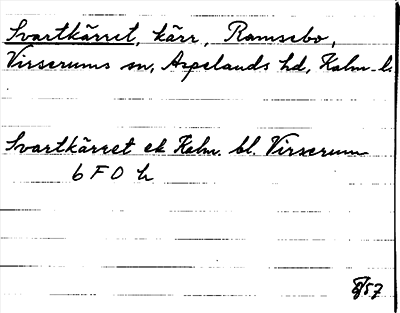 Svartkärret, kärr, Ramsebo,
Virserums sn, Aspelands hd, Kalm. l.
Svartkärret ek Kalm. bl. Virserum
6 F 0 h